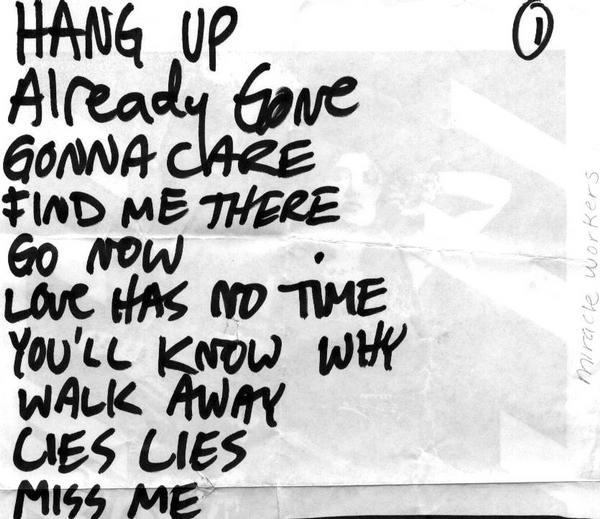 HANG UP
1
Already Gone
GONNA CARE
FIND ME THERE
GO NOW
LOVE HAS NO TIME
YOU'LL KNOW WHY
WALK AWAY
LIES LIES
MISS ME
miracle workers